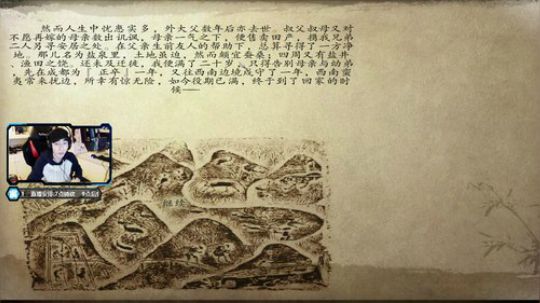 然而人生中忧患实多，外大父数年后亦去世，叔父叔母又对
不愿再嫁的母亲数出讥讽，母亲一气之下，便售卖田产，携我兄弟
二人另寻安居之处。在父亲生前友人的帮助下，总算寻得了一方净
地。那儿名为盐泉里，土地虽边，然而颇宜蚕桑；四周又有盐井
、渔田之饶。还未及迁徙，我便满了二十岁。只得告别母亲与幼弟
，先在成都为『正卒』一年，又往西南边境戍守了一年，西南蛮
夷常来扰边，所幸有惊无险，如今役期已满，终于到了回家的时
候——
继续